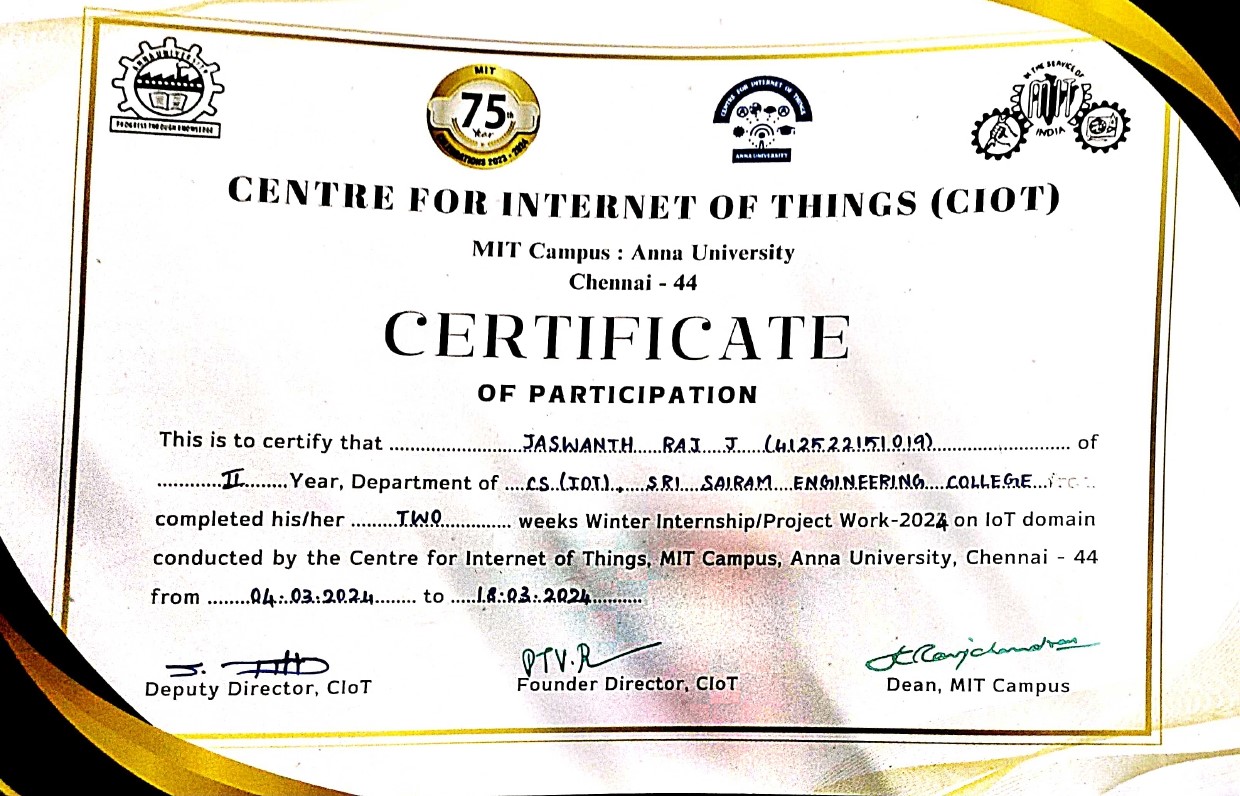 ANNA UNIVERSITY
PROGRESS THROUGH KNOWLEDGE
MIT
75th
Year
CELEBRATIONS 2023 - 2024
CENTRE FOR INTERNET OF THINGS
ANNA UNIVERSITY
IN THE SERVICE OF
MIT
INDIA
CENTRE FOR INTERNET OF THINGS (CIOT)
MIT Campus : Anna University
Chennai - 44
CERTIFICATE
OF PARTICIPATION
This is to certify that JASWANTH RAJ J (412522151019) of
II Year, Department of CS (IOT), SRI SAIRAM ENGINEERING COLLEGE
completed his/her TWO weeks Winter Internship/Project Work-2024 on IoT domain
conducted by the Centre for Internet of Things, MIT Campus, Anna University, Chennai - 44
from 04.03.2024 to 18.03.2024
Deputy Director, CIoT
PTV.R
Founder Director, CIoT
Dean, MIT Campus